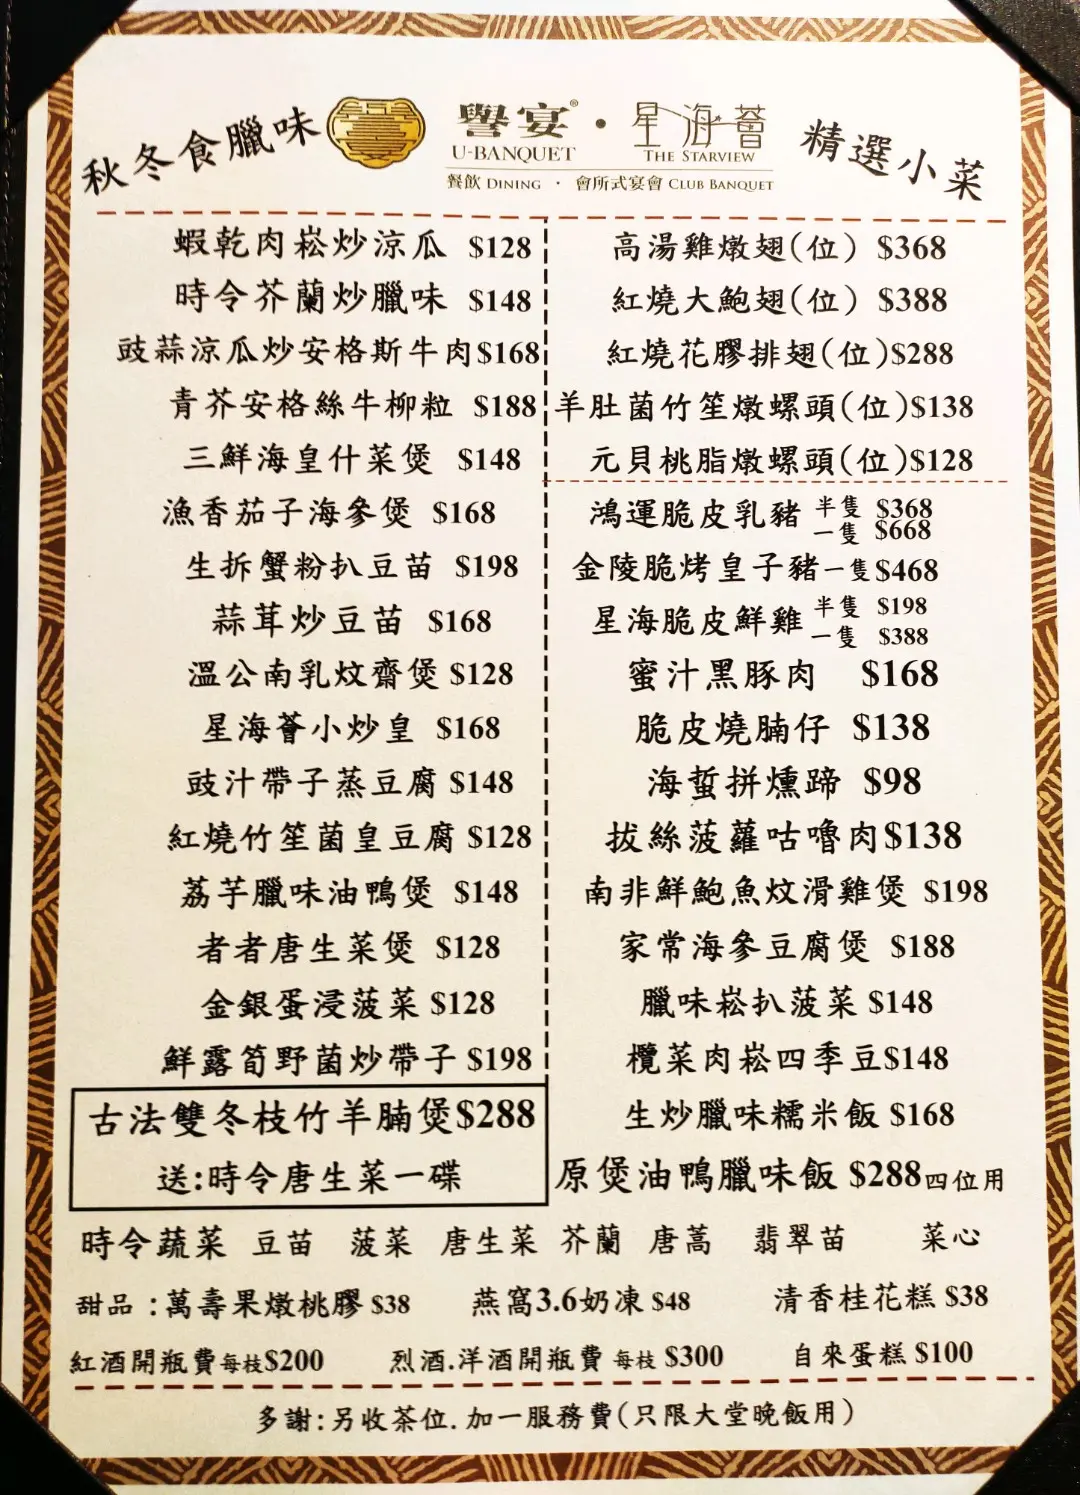 秋冬食臘味
譽宴® · 星海薈
U-BANQUET THE STARVIEW
餐飲 DINING · 會所式宴會 CLUB BANQUET
精選小菜
蝦乾肉崧炒涼瓜 $128
時令芥蘭炒臘味 $148
豉蒜涼瓜炒安格斯牛肉$168
青芥安格絲牛柳粒 $188
三鮮海皇什菜煲 $148
漁香茄子海參煲 $168
生拆蟹粉扒豆苗 $198
蒜茸炒豆苗 $168
溫公南乳炆齋煲 $128
星海薈小炒皇 $168
豉汁帶子蒸豆腐 $148
紅燒竹笙菌皇豆腐 $128
荔芋臘味油鴨煲 $148
者者唐生菜煲 $128
金銀蛋浸菠菜 $128
鮮露筍野菌炒帶子 $198
古法雙冬枝竹羊腩煲$288
送:時令唐生菜一碟
高湯雞燉翅(位) $368
紅燒大鮑翅(位) $388
紅燒花膠排翅(位)$288
羊肚菌竹笙燉螺頭(位)$138
元貝桃脂燉螺頭(位)$128
鴻運脆皮乳豬 半隻 $368
一隻 $668
金陵脆烤皇子豬一隻$468
星海脆皮鮮雞 半隻 $198
一隻 $388
蜜汁黑豚肉 $168
脆皮燒腩仔 $138
海蜇拼燻蹄 $98
拔絲菠蘿咕嚕肉$138
南非鮮鮑魚炆滑雞煲 $198
家常海參豆腐煲 $188
臘味崧扒菠菜 $148
欖菜肉崧四季豆$148
生炒臘味糯米飯 $168
原煲油鴨臘味飯 $288四位用
時令蔬菜 豆苗 菠菜 唐生菜 芥蘭 唐蒿 翡翠苗 菜心
甜品:萬壽果燉桃膠 $38 燕窩3.6奶凍 $48 清香桂花糕 $38
紅酒開瓶費每枝$200 烈酒.洋酒開瓶費 每枝 $300 自來蛋糕 $100
多謝:另收茶位.加一服務費(只限大堂晚飯用)